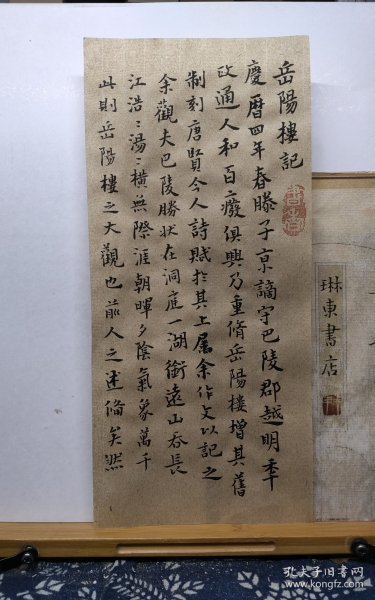 岳陽樓記
慶曆四年春滕子京謫守巴陵郡越明年
政通人和百廢俱興乃重脩岳陽樓增其舊
制刻唐賢今人詩賦於其上屬余作文以記之
余觀夫巴陵勝狀在洞庭一湖銜遠山吞長
江浩〻湯〻橫無際涯朝暉夕陰氣象萬千
此則岳陽樓之大觀也前人之述備矣然
琳東書店
孔夫子旧书网